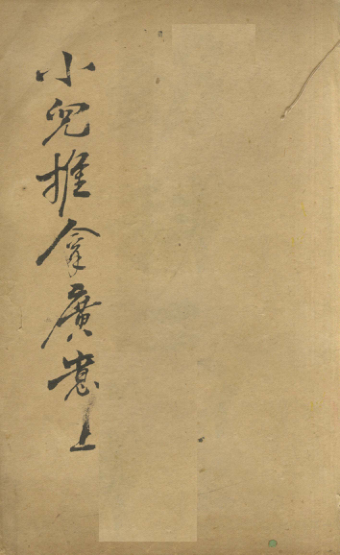 小兒推拿廣意上